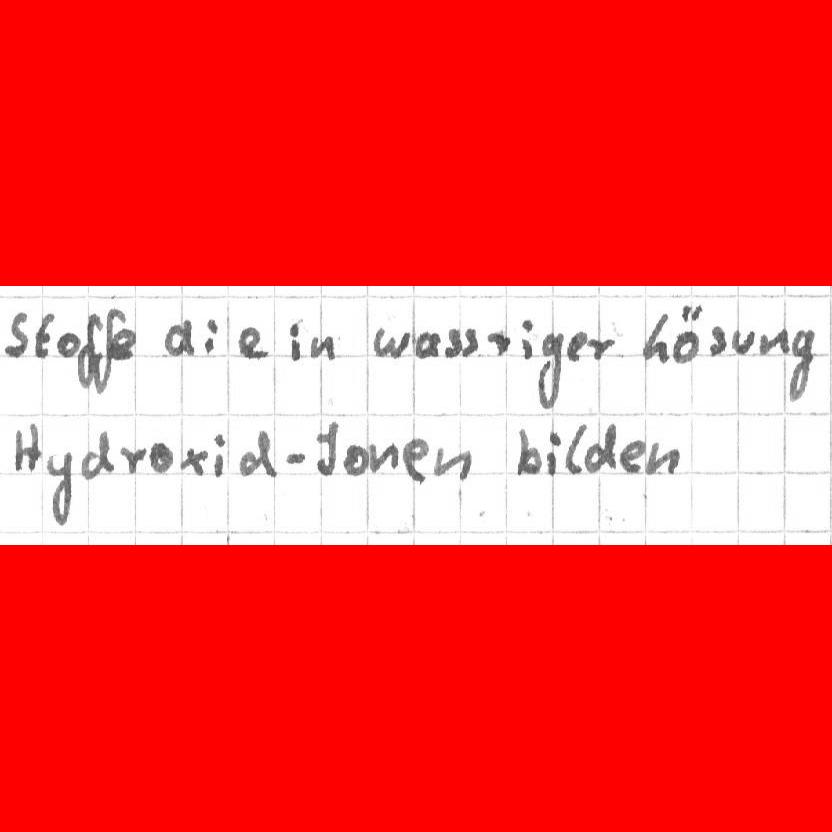 Stoffe die in wassriger Lösung
Hydroxid-Ionen bilden